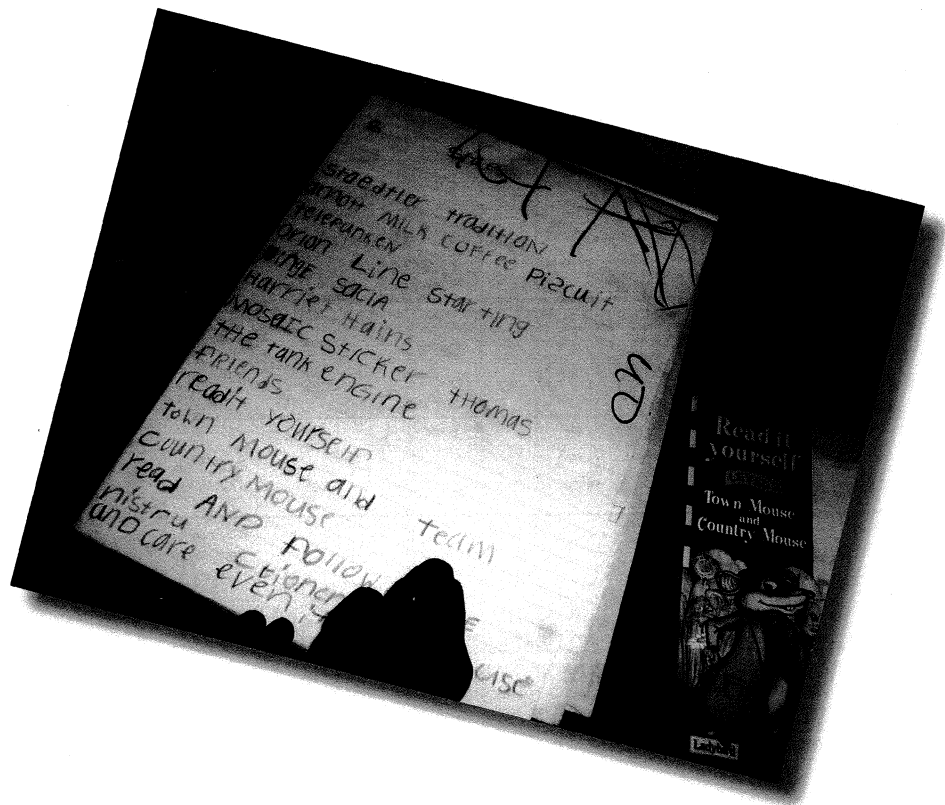 staedtler tradition
arnott MILK COFFEE Piscuit
telefunken
orion Line starting
Harriet Hains
Mosaic Sticker thomas
tHe tank engine
friends
readit yourself
town Mouse and team
Country Mouse
read AND Follow
nistru ctions
and care even
use
Read it
yourself
Town Mouse
and
Country Mouse
Ladybird